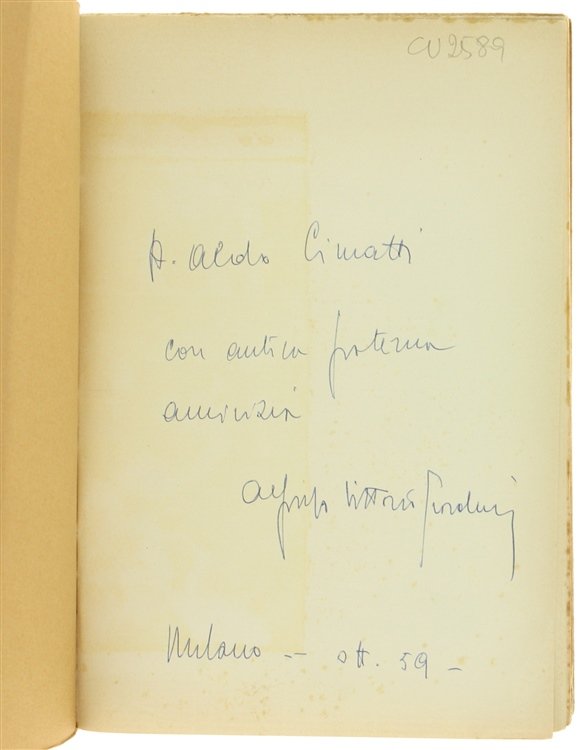 CU2589
A. Aldo Cimatti
con antica fraterna
amicizia
Alfredo Vittorio
Milano -- ott. 59 -